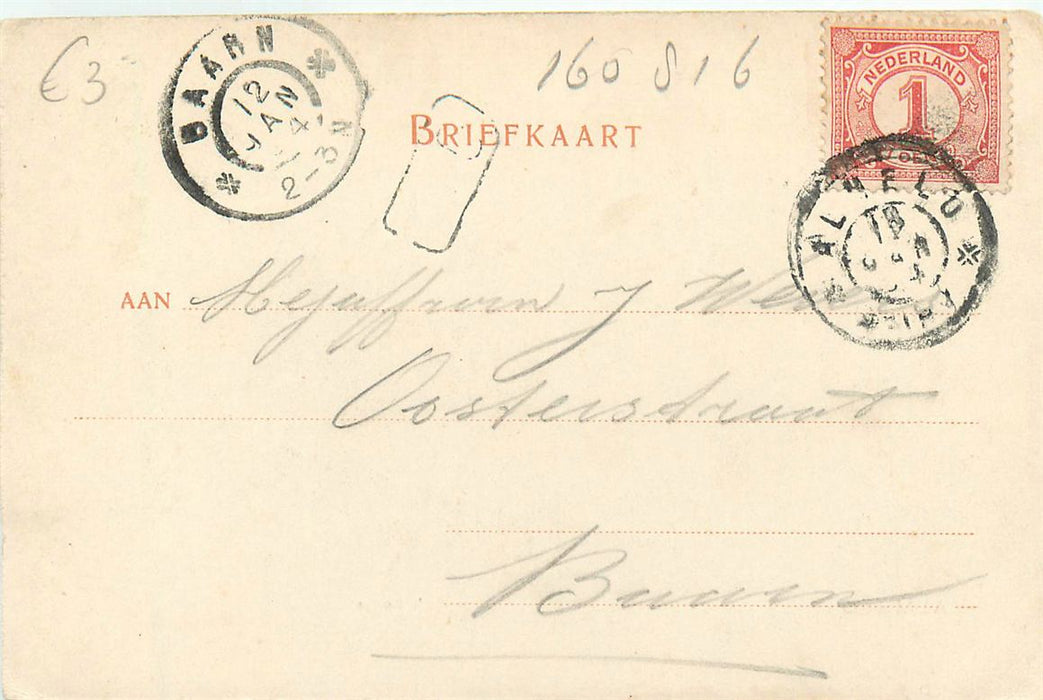 €3-
BAARN
12
JAN
2-3N
160816
BRIEFKAART
NEDERLAND
1
ALMELO
AAN Mejuffrouw J
Oosterstraat
Baarn